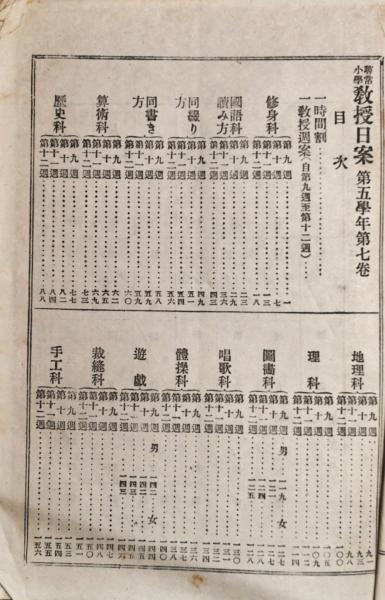 尋常小學 教授日案 第五學年第七卷
目次
一時間割
一教授週案(自第九週至第十二週)
修身科
第九週 一
第十週 七
第十一週 一三
第十二週 一八
國語科讀み方
第九週 二三
第十週 二九
第十一週 三六
第十二週 四三
同綴り方
第九週 四九
第十週
第十一週 五一
第十二週
同書き方
第九週
第十週
第十一週 五九
第十二週 六〇
算術科
第九週
第十週
第十一週 六九
第十二週 七三
歷史科
第九週 七七
第十週 八二
第十一週 八四
第十二週 八八
地理科
第九週 九一
第十週
第十一週 九八
第十二週 一〇〇
理科
第九週
第十週
第十一週
第十二週
圖畫科
第九週 男 一一九 女 一二七
第十週 一二一
第十一週 一二四
第十二週 一二五
唱歌科
第九週 一三〇
第十週
第十一週
第十二週
體操科
第九週
第十週
第十一週
第十二週 一四〇
遊戲
第九週 男 一四二 女
第十週 一四二
第十一週 一四三
第十二週 一四三
裁縫科
第九週
第十週
第十一週
第十二週 一五〇
手工科
第九週 一五一
第十週 一五三
第十一週 一五四
第十二週 一五六